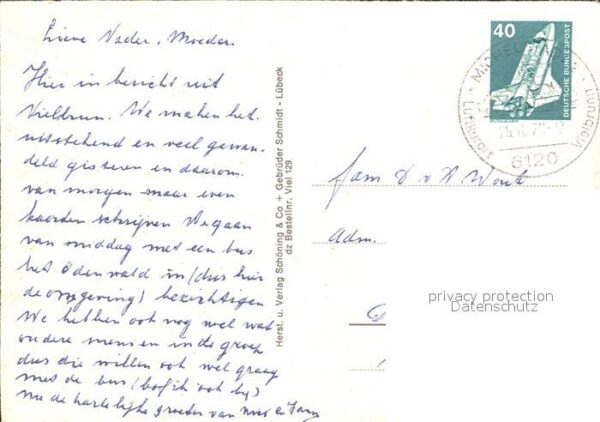 Lieve Vader, Moeder.
Hier in bericht uit
Vielbrun. We maken het
uitstekend en veel gewan-
deld gisteren en daarom
van morgen maar even
kaarten schrijven We gaan
van middag met een bus
het Odenwald in (dus hier
de omgeving) bezichtigen
We hebben ook nog wel wat
oudere mensen in de groep
dus die willen ook wel graag
met de bus (bof ik ook bij)
de hartelijke groeten van
Herst. u. Verlag Schöning & Co + Gebrüder Schmidt - Lübeck
dz Bestellnr. Viel 129
40
DEUTSCHE BUNDESPOST
Luftkurort
Vielbrunn
6120
Fam D v D Wout
Adm.
privacy protection
Datenschutz